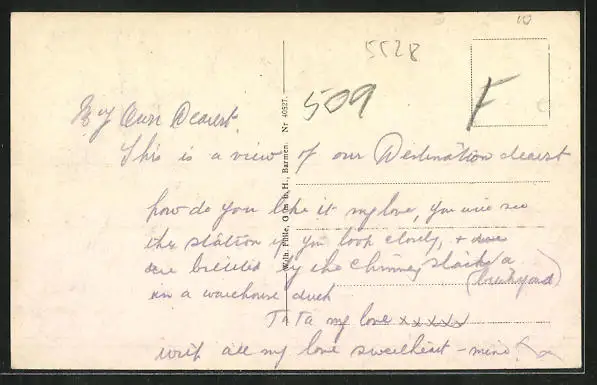 10
5528
509
F
My Own Dearest
This is a view of our Destination dearest
how do you like it my love, you will see
the station if you look closely, + we
are billeted by the chimney stacks
in a warehouse duck
Ta Ta my love xxxxx
with all my love sweetheart - mine
Wilh. Fülle, G. m. b. H., Barmen. Nr 40827.